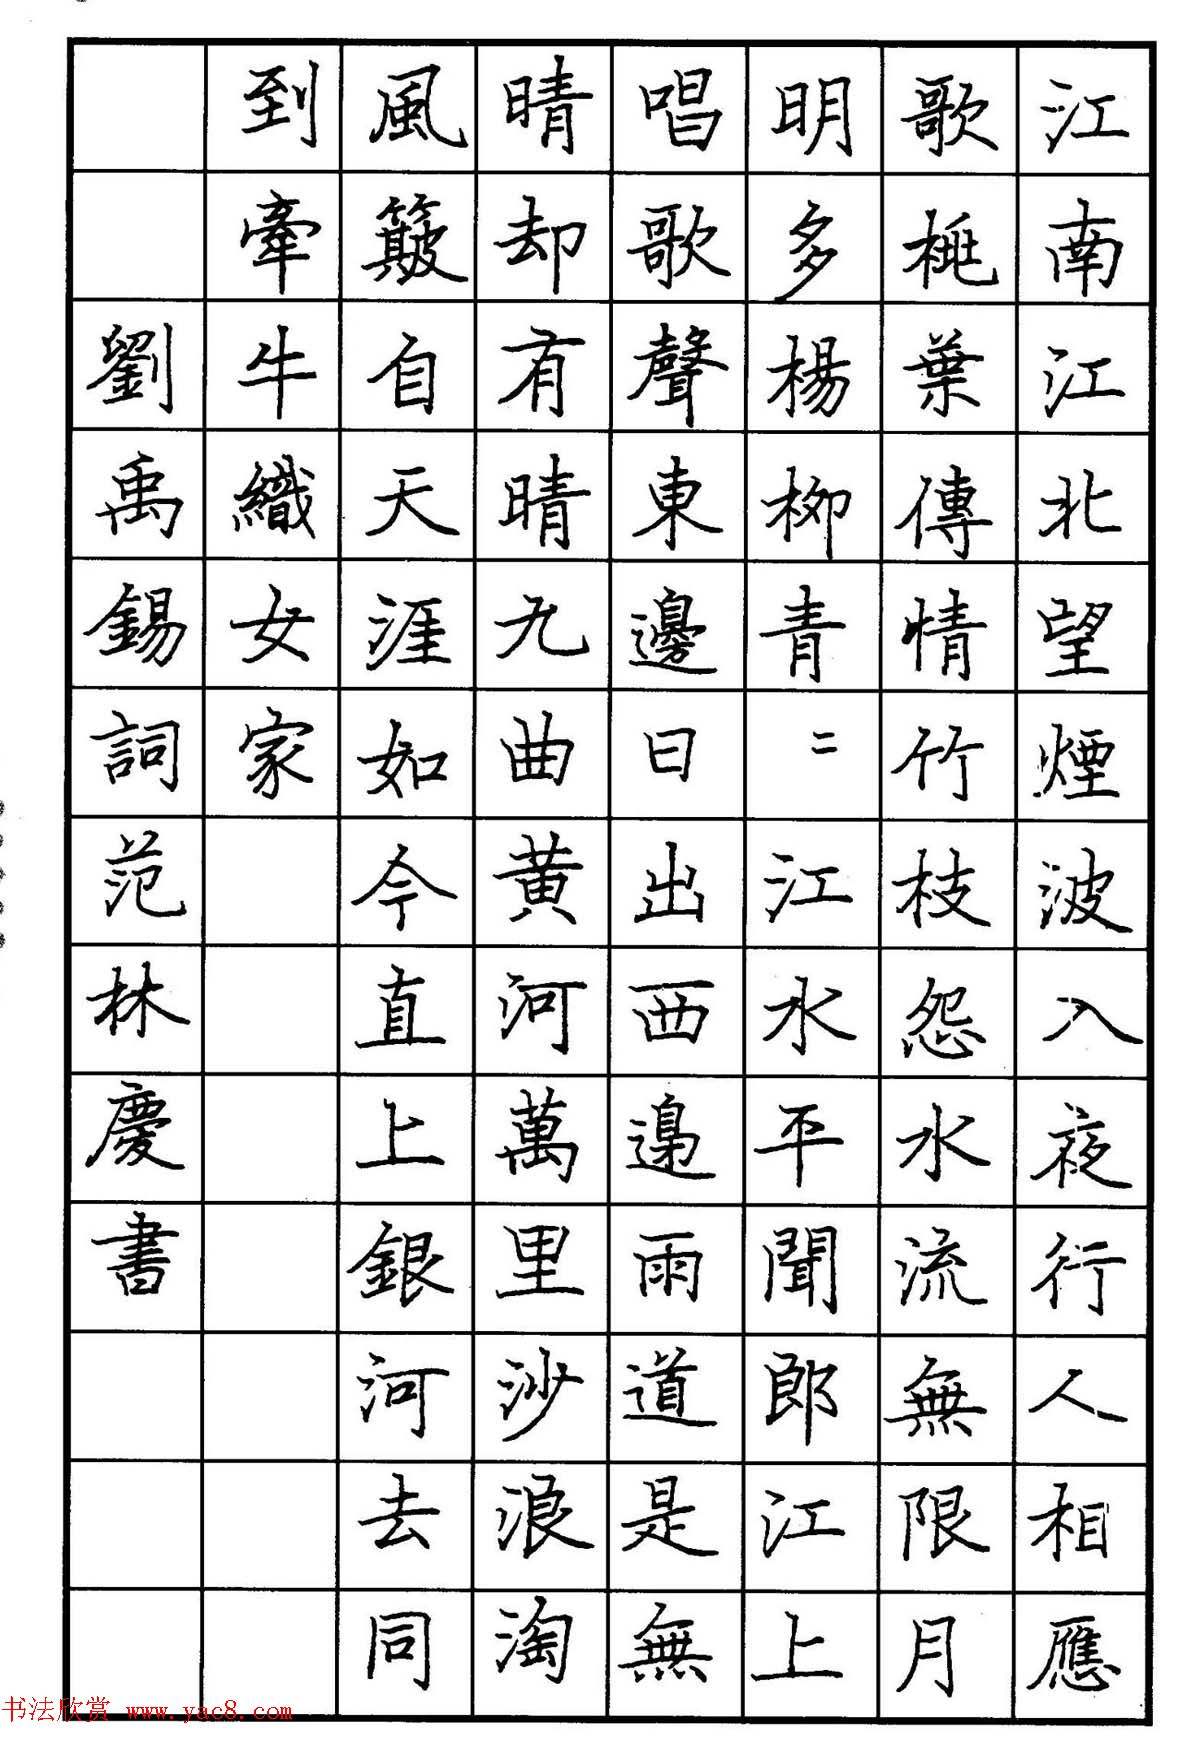 江南江北望煙波入夜行人相應
歌桃葉傳情竹枝怨水流無限月
明多楊柳青〻江水平聞郎江上
唱歌聲東邊日出西邊雨道是無
晴却有晴九曲黄河萬里沙浪淘
風簸自天涯如今直上銀河去同
到牽牛織女家
劉禹錫詞范林慶書
书法欣赏 www.yac8.com